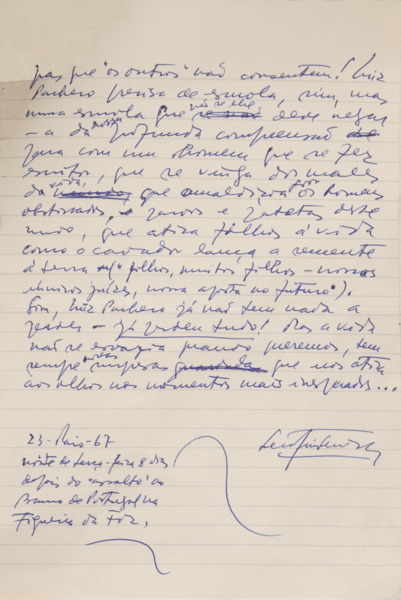 mas que "os outros" não consentem! Luiz
Pacheco precisa de esmola, sim, mas
numa esmola que não se lhe deve negar
– a da nossa profunda compreensão
para com um Homem que se fez
escritor, que se vinga dos males
da vida, que amaldiçoa os Homens
obstinados, e patetas deste
mundo, que atira filhos à vida
como o cavador lança a semente
à terra ("filhos, muitos filhos – nossos
únicos juízes, nossa aposta no futuro").
Sim, Luiz Pacheco já não tem nada a
perder – já perdeu tudo! Mas a vida
não se esvazia quando queremos, tem
sempre surpresas que nos atira
aos olhos nos momentos mais inesperados...
23-Maio-67
noite de terça-feira 8 dias
depois do "assalto" ao
Banco de Portugal na
Figueira da Foz,